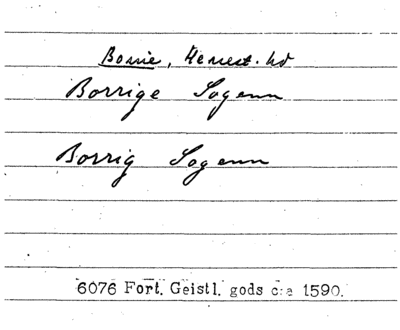 Borrie, Henest. hd
Borrige Sogenn
Borrig Sogenn
6076 Fort. Geistl. gods c:a 1590.